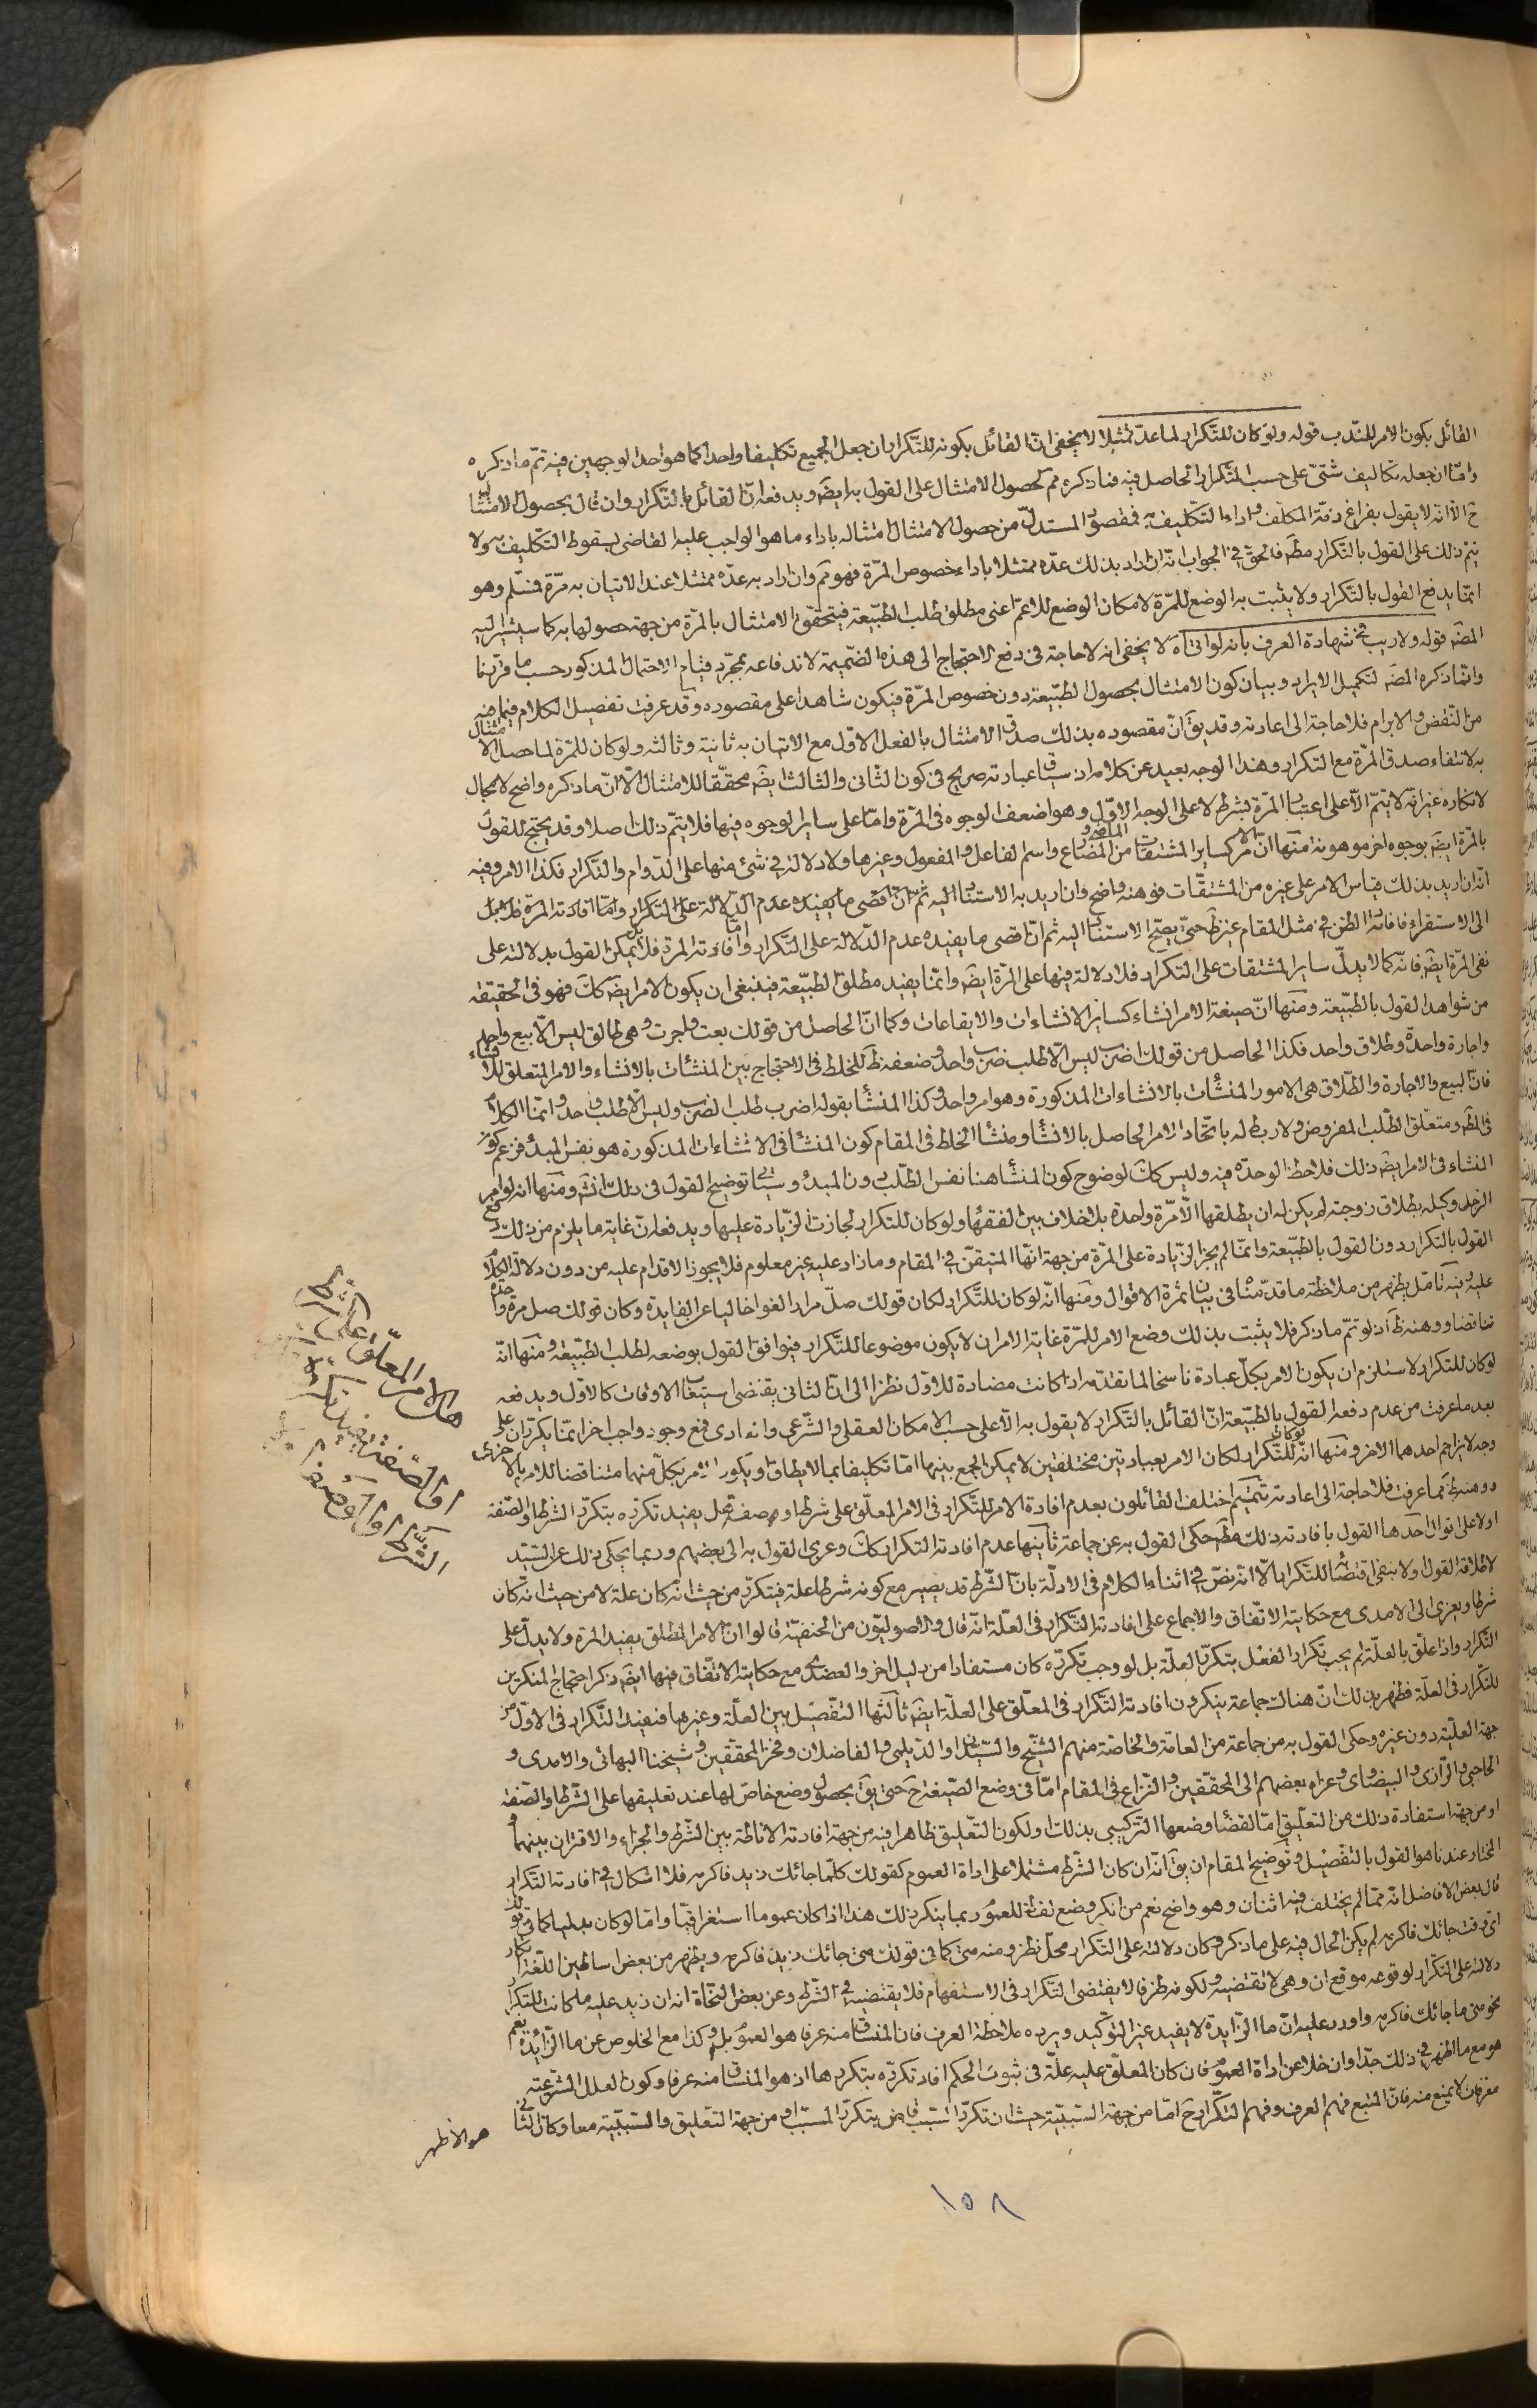 القائل بكون الامر للندب قوله ولو كان للتكرار لما عد ممتثلا لا يخفى ان القائل بكونه للتكرار ان جعل الجميع تكليفا واحدا كما هو احد الوجهين فيه تم ما ذكره
واما ان جعله تكاليف شتى على حسب التكرار الحاصل فيه فما ذكره مم لحصول الامتثال على القول به ايضا ويدفعه ان القائل بالتكرار وان قال بحصول الامتثال
ح الا انه لا يقول بفراغ ذمة المكلف واداء التكليف به فمقصود المستدل من حصول الامتثال امتثاله باداء ما هو الواجب عليه القاضى بسقوط التكليف به ولا
يتم ذلك على القول بالتكرار مطم فالحق فى الجواب انه ان اراد بذلك عده ممتثلا باداء خصوص المرة فهو مم وان اراد به عده ممتثلا عند الاتيان به مرة فمسلم وهو
انما يدفع القول بالتكرار ولا يثبت به الوضع للمرة لامكان الوضع للاعم اعنى مطلق طلب الطبيعة فيتحقق الامتثال بالمرة من جهة حصولها به كما سيشير اليه
المصه قوله ولا ريب فى شهادة العرف بانه لو اتى اه لا يخفى انه لا حاجة فى دفع الاحتجاج الى هذه الضميمة لاندفاعه بمجرد قيام الاحتمال المذكور حسب ما قررنا
وانما ذكره المصه لتكميل الايراد وبيان كون الامتثال بحصول الطبيعة دون خصوص المرة فيكون شاهدا على مقصوده وقد عرفت تفصيل الكلام فيما فيه
من النقض والابرام فلا حاجة الى اعادته وقد يق ان مقصوده بذلك صدق الامتثال بالفعل الاول مع الاتيان به ثانية وثالثه ولو كان للمرة لما حصل الامتثال
به لانتفاء صدق المرة مع التكرار وهذا الوجه بعيد عن كلامه اذ سياق عبارته صريح فى كون الثانى والثالث ايضه محققا للامتثال الا ان ما ذكره واضح لا مجال
لانكاره غير انه لا يتم الا على اعتبار المرة بشرط لا على الوجه الاول وهو اضعف الوجوه فى المرة واما على ساير الوجوه فيها فلا يتم ذلك اصلا وقد يحتج للقول
بالمرة ايضه بوجوه اخر موهونة منها ان الامر كساير المشتقات من الماضى والمضارع واسم الفاعل والمفعول وغيرها ولا دلالة فى شئ منها على الدوام والتكرار فكذا الامر وفيه
انه ان اريد بذلك قياس الامر على غيره من المشتقات فوهنه واضح وان اريد به الاستناد اليه ثم ان اقصى ما يفيده عدم الدلالة على التكرار واما افادته المرة فلا بل
الى الاستقراء فافادته الظن فى مثل المقام غير ظ حتى يصح الاستناد اليه ثم ان اقصى ما يفيده عدم الدلالة على التكرار واما افادته المرة فلا بل يمكن القول بدلالته على
نفى المرة ايضه فانه كما لا يدل ساير المشتقات على التكرار فلا دلالة فيها على المرة ايضه وانما يفيد مطلق الطبيعة فينبغى ان يكون الامر ايضه كك فهو فى الحقيقة
من شواهد القول بالطبيعة ومنها ان صيغة الامر انشاء كسائر الانشاءات والايقاعات وكما ان الحاصل من قولك بعت واجرت وهى طالق ليس الا بيع واحد
واجارة واحدة وطلاق واحد فكذا الحاصل من قولك اضرب ليس الا طلب ضرب واحد وضعفه ظ للخلط فى الاحتجاج بين المنشئات بالانشاء والامر المتعلق للانشاء
فان البيع والاجارة والطلاق هى الامور المنشئات بالانشاءات المذكورة وهو امر واحد وكذا المنشا بقوله اضرب طلب الضرب وليس الا طلب واحد وانما الكلام
فى المطه ومتعلق الطلب المفروض ولا ربط له باتحاد الامر الحاصل بالانشاء ومنشا الخلط فى المقام كون المنشا فى الانشاءات المذكورة هو نفس المبدء فزعم كون
المنشاء فى الامر ايضه ذلك فلاحظ الوحدة فيه وليس كك لوضوح كون المنشا هنا نفس الطلب دون المبدء وسياتى توضيح القول فى ذلك انش ومنها انه لو امر
الرجل وكيله بطلاق زوجته لم يكن له ان يطلقها الا مرة واحدة بلا خلاف بين الفقهاء ولو كان للتكرار لجازت الزيادة عليها ويدفعه ان غاية ما يلزم من ذلك دفع
القول بالتكرار دون القول بالطبيعة وانما لم يجز الزيادة على المرة من جهة انها المتيقن فى المقام وما زاد عليه غير معلوم فلا يجوز الاقدام عليه من دون دلالة الكلام
عليه وفيه تامل يظهر من ملاحظة ما قدمناه فى بيان ثمرة الاقوال ومنها انه لو كان للتكرار لكان قولك صل مرارا لغوا خاليا عن الفايدة وكان قولك صل مرة واحدة
تناقضا ووهنه ظ اذ لو تم ما ذكر فلا يثبت بذلك وضع الامر للمرة غاية الامر ان لا يكون موضوعا للتكرار فيوافق القول بوضعه لطلب الطبيعة ومنها انه
لو كان للتكرار لاستلزم ان يكون الامر بكل عبادة ناسخا لما تقدمه اذا كانت مضادة للاول نظرا الى ان الثانى يقتضى استيعاب الاوقات كالاول ويدفعه
بعد ما عرفت من عدم دفعه القول بالطبيعة ان القائل بالتكرار لا يقول به الا على حسب الامكان العقلى والشرعى وانه فمع وجود واجب اخر انما يكرران على
وجه لا يزاحم احدهما الاخر ومنها انه لو كان للتكرار لكان الامر بعبادتين مختلفتين لا يمكن الجمع بينهما اما تكليفا بما لا يطاق او يكون الامر بكل منهما مناقضا للامر بالاخرى
ووهنه ظ مما عرفت فلا حاجة الى اعادته تتميم اختلف القائلون بعدم افادة الامر للتكرار فى الامر المعلق على شرط او صفة هل يفيد تكرره بتكرر الشرط او الصفة
اولا على اقوال احدها القول بافادته ذلك مطه حكى القول به عن جماعة ثانيها عدم افادته التكرار كك وعزى القول به الى بعضهم وربما يحكى ذلك عن السيد
لاطلاقه القول ولا بنفى اقتضائه للتكرار الا انه نص فى اثناء الكلام فى الادلة بان الشرط قد يصير مع كونه شرطا علة فيتكرر من حيث انه كان علة لا من حيث انه كان
شرطا ويعزى الى الامدى مع حكايته الاتفاق والاجماع على افادته التكرار فى العلة انه قال والاصوليون من الحنفية قالوا ان الامر المطلق يفيد المرة ولا يدل على
التكرار واذا علق بالعلة لم يجب تكرار الفعل بتكرر العلة بل لو وجب تكرره كان مستفادا من دليل اخر والعضدى مع حكايته الاتفاق فيها ايضه ذكر احتجاج المنكرين
للتكرار فى العلة فظهر بذلك ان هناك جماعة ينكرون افادته التكرار فى المعلق على العلة ايضه ثالثها التفصيل بين العلة وغيرها فيفيد التكرار فى الاول من
جهة العلية دون غيره وحكى القول به من جماعة من العامة والخاصة منهم الشيخ والسيدان والديلمى والفاضلان وفخر المحققين وشيخنا البهائى والامدى و
الحاجبى والرازى والبيضاوى وعزاه بعضهم الى المحققين والنزاع فى المقام اما فى وضع الصيغة ح حتى يق بحصول وضع خاص لها عند تعليقها على الشرط والصفة
او من جهة استفادة ذلك من التعليق اما لقضاء وضعها التركيبى بذلك او لكون التعليق ظاهرا فيه من جهة افادته الاناطة بين الشرط والجزاء والاقتران بينهما و
المختار عندنا هو القول بالتفصيل وتوضيح المقام ان يق انه ان كان الشرط مشتملا على اداة العموم كقولك كلما جائك زيد فاكرمه فلا اشكال فى افادته التكرار
قال بعض الافاضل انه مما لم يختلف فيه اثنان وهو واضح نعم من انكر وضع لفظة للعموم ربما ينكر ذلك هذا اذا كان عموما استغراقيا واما لو كان بدليا كما فى قولك
اى وقت جائك فاكرمه لم يكن الحال فيه على ما ذكر وكان دلالته على التكرار محل نظر ومنه متى كما فى قولك متى جائك زيد فاكرمه ويظهر من بعض اساطين اللغة انكار
دلالته على التكرار لوقوعه موقع ان وهى لا تقتضيه ولكونه ظرفا لا يقتضى التكرار فى الاستفهام فلا يقتضيه فى الشرط وعن بعض النحاة انه ان زيد عليه ما كانت للتكرار
نحو متى ما جائك فاكرمه واورد عليه ان ما الزايدة لا يفيد غير التوكيد ويرده ملاحظة العرف فان المنساق منه عرفا هو العموم بل وكذا مع الخلوص عن ما الزائدة نعم
هو مع ما اظهر فى ذلك جدا وان خلا عن اداة العموم فان كان المعلق عليه علة فى ثبوت الحكم افاد تكرره بتكررها اذ هو المنساق منه عرفا وكون العلل الشرعية
معرفات لا يمنع منه فان المتبع فهم العرف وفهم التكرار ح اما من جهة السببية حيث ان تكرر السبب قاض بتكرر المسبب او من جهة التعليق والسببية معا وكان الثانى
هو الاظهر
هل الامر المعلق على شرط
او الصفة يفيد تكراره
الشرط او الصفة
١٥٨